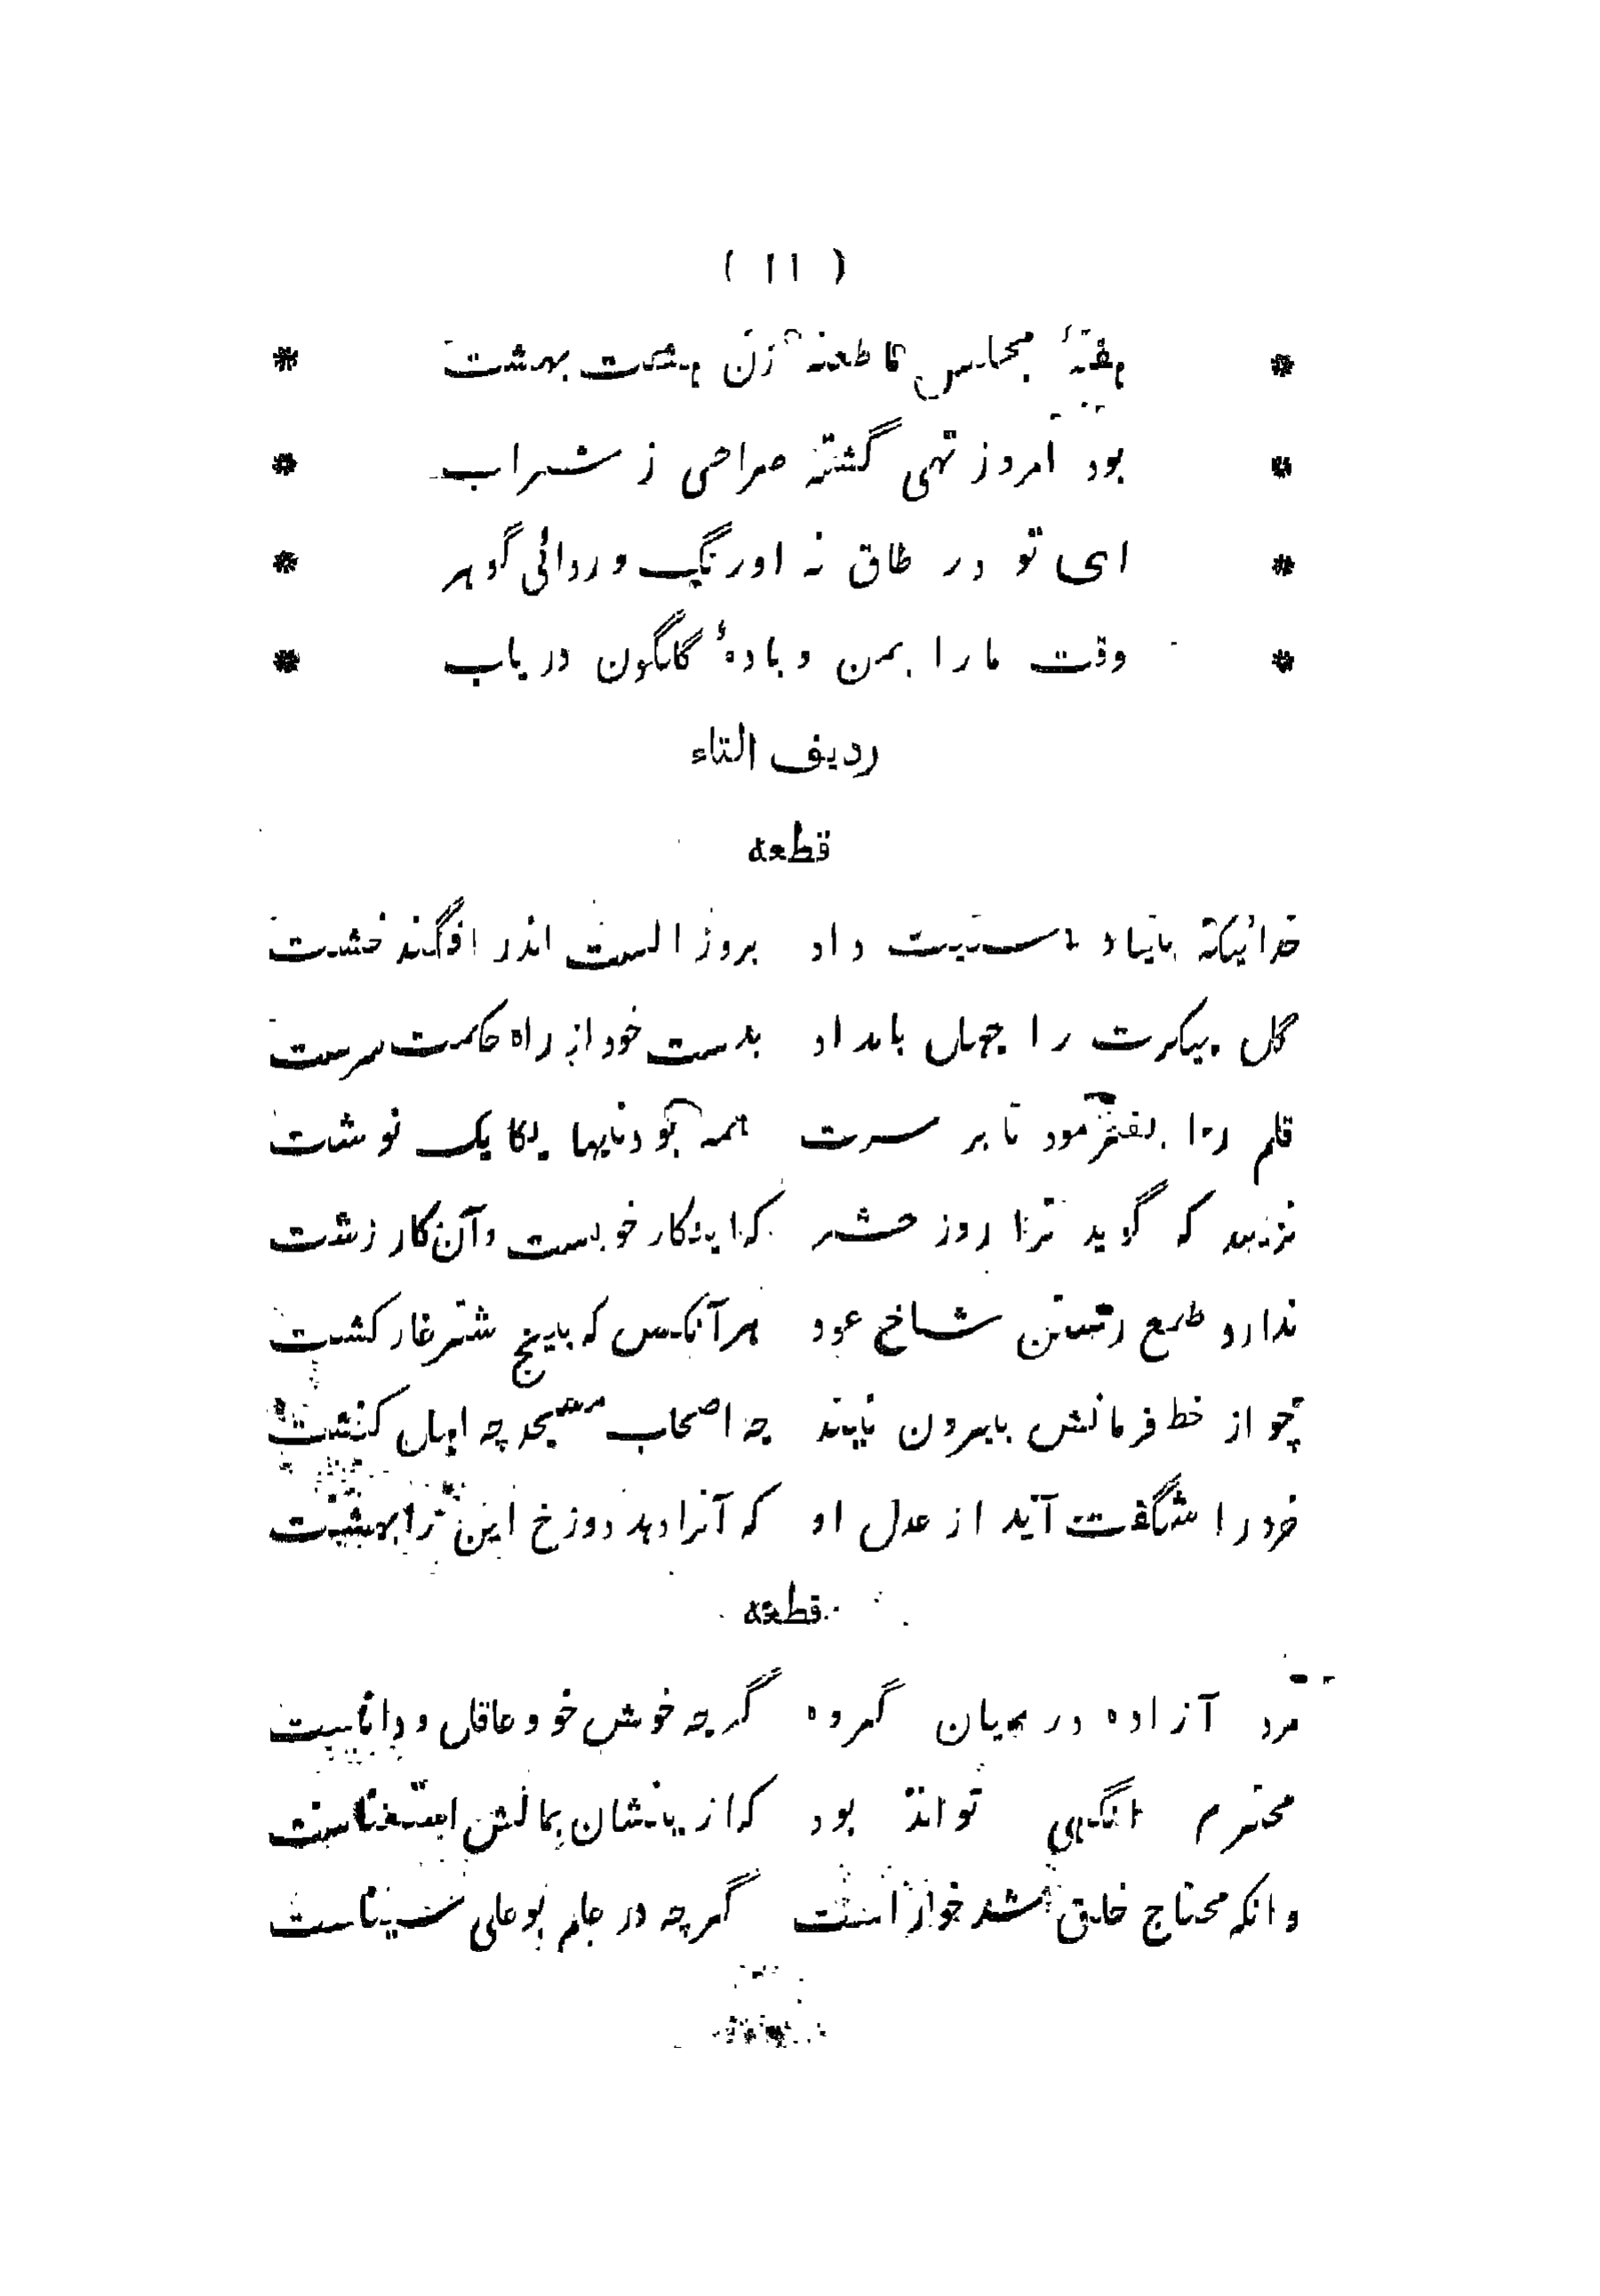 ( ۱۱ )
* هفتهٔ مجلس ما طعنه زن هشت بهشت *
* بود امروز تهی گشته صراحی ز شراب *
* ای تو در طاق نه اورنگ و ردائی گوهر *
* وقت ما را بمن و بادهٔ گلگون دریاب *
ردیف التاء
قطعه
خدائیکه بنیاد هستیت داد بروز الست اندر افگند خشت
گل پیکرت را چهل بامداد بدست خود از راه حکمت سرشت
قلم را بفرمود تا بر سرت همه بودنیها یکایک نوشت
نزیبد که گوید ترا روز حشر که اینکار خوبست و آن کار زشت
ندارد طمع رستن شاخ عود هرآنکس که بیخ شترغار کشت
چو از خط فرمانش بیرون نیند چه اصحاب مسجد چه اهل کنشت
خرد را شگفت آید از عدل او که آنرا دهد دوزخ این را بهشت
قطعه
مرد آزاده در میان گروه گرچه خوش خو و عاقل و داناست
محترم انگهی تواند بود که ازیشان بمالش استغناست
وانکه محتاج خلق شد خوار است گرچه در علم بوعلی سیناست